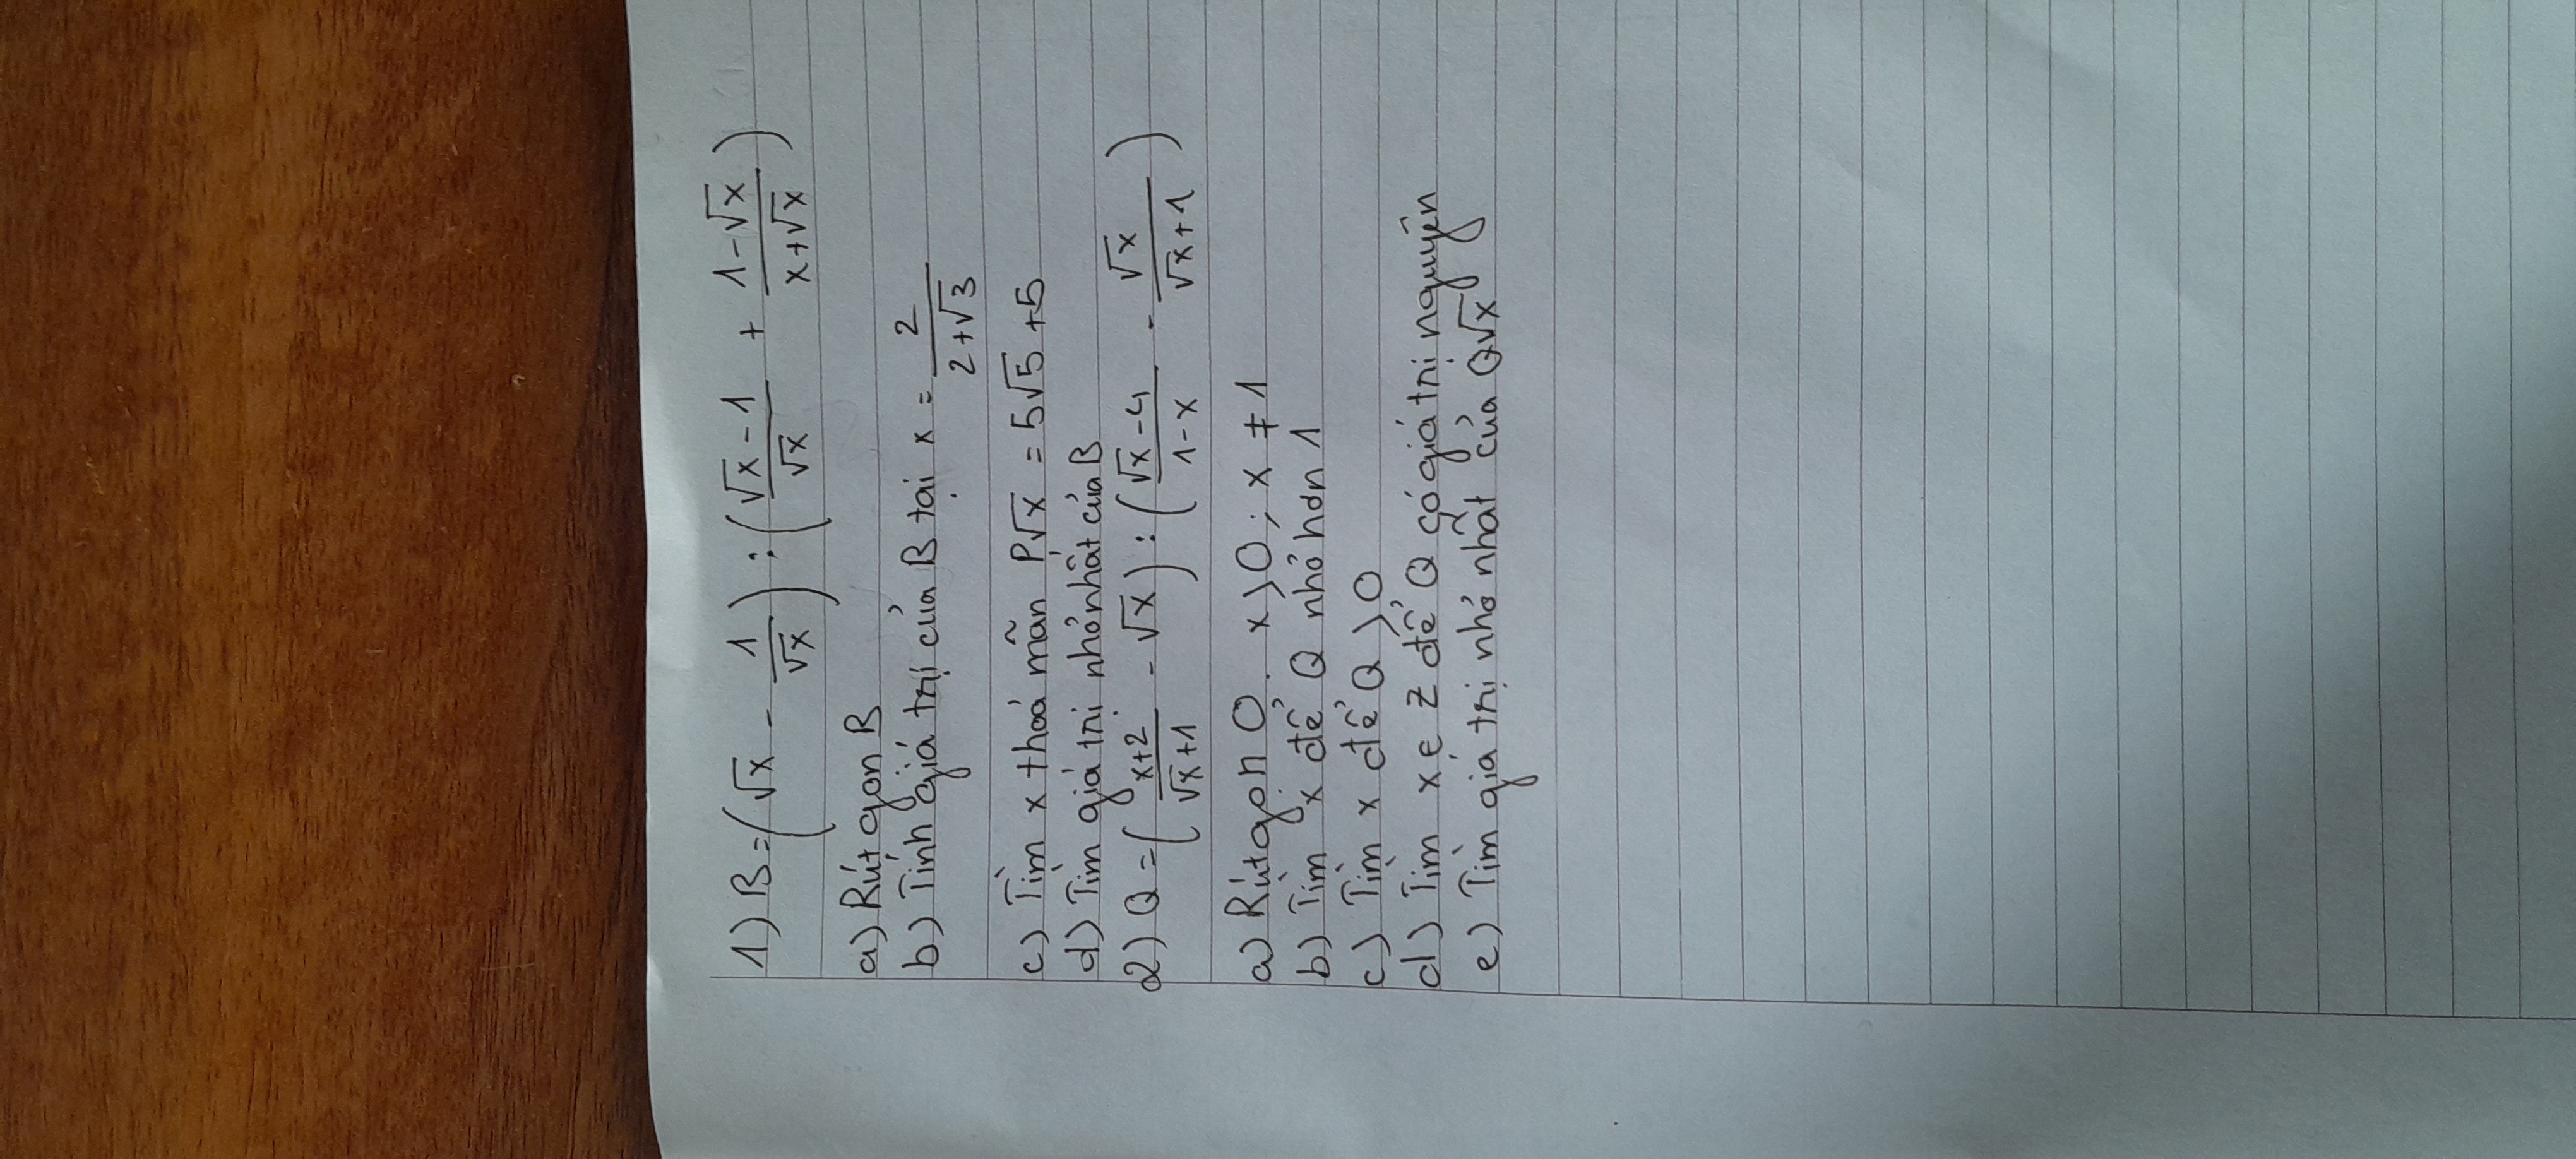 1) B = (√x - 1/√x) : (√x-1/√x + 1-√x/x+√x)
a) Rút gọn B
b) Tính giá trị của B tại x = 2/2+√3
c) Tìm x thoả mãn P√x = 5√5 +5
d) Tìm giá trị nhỏ nhất của B
2) Q = (x+2/√x+1 - √x) : (√x-4/1-x - √x/√x+1)
a) Rút gọn Q. x>0; x ≠ 1
b) Tìm x để Q nhỏ hơn 1
c) Tìm x để Q >0
d) Tìm x ∈ Z để Q có giá trị nguyên
e) Tìm giá trị nhỏ nhất của Q√x